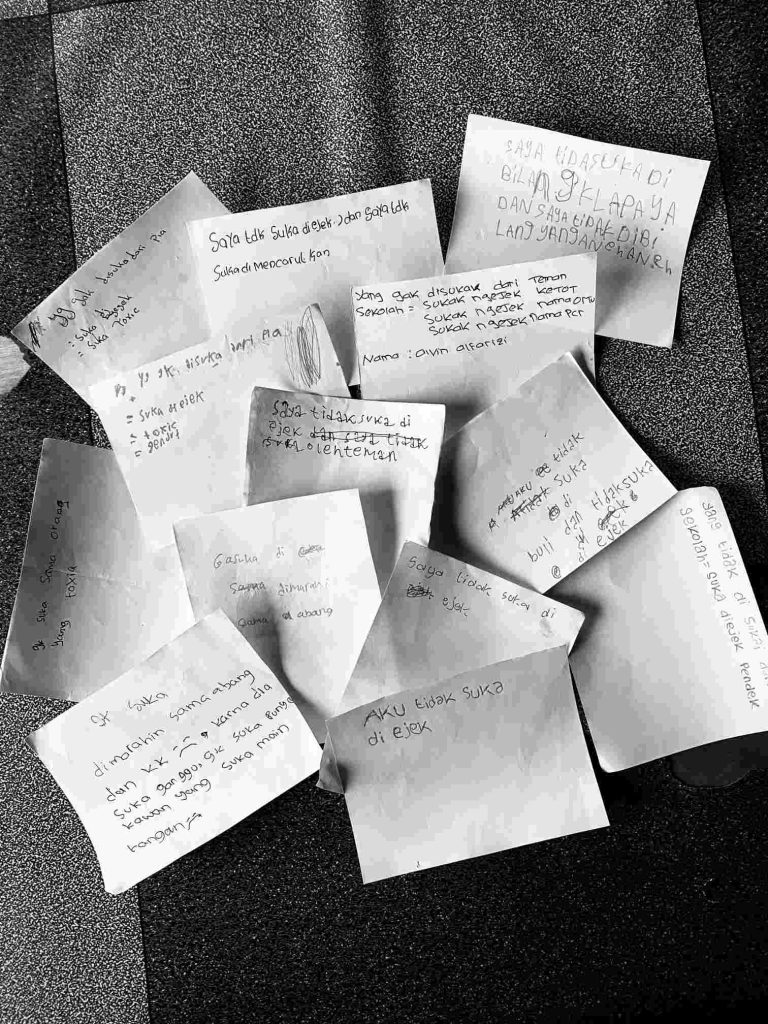 SAYA tIDASUKA Di
BiLA NgKLAPAYA
DAN SAYA tIDAK DiBi
LANg YANgANEhANEh
Yg gak disuka dari Pia
= Suka
= Suka Toxic
Saya tdk Suka diejek, dan Saya tdk
Suka di
yang gak disukak dari Teman
Sekolah = sukak ngejek KETOT
sukak ngejek nama ORTU
sukak ngejek nama Pcr
Nama : alvin alfarizi
Yg gk disuka dari Pia
= suka diejek
= toxic
Saya tidak suka di
ejek dan saya tidak
oleh teman
AKU tidak
suka
di
buli dan tidak suka
di
ejek
gk suka sama orang
yang toxic
Gasuka di
dimarahi
sama abang
Saya tidak suka di
ejek
yang tidak di sukai dari
sekolah = suka diejek pendek
gk suka
dimarahin sama abang
dan kk karna dia
suka ganggu. gk suka punya
kawan yang suka main
tangan
AKU tidak suka
di ejek